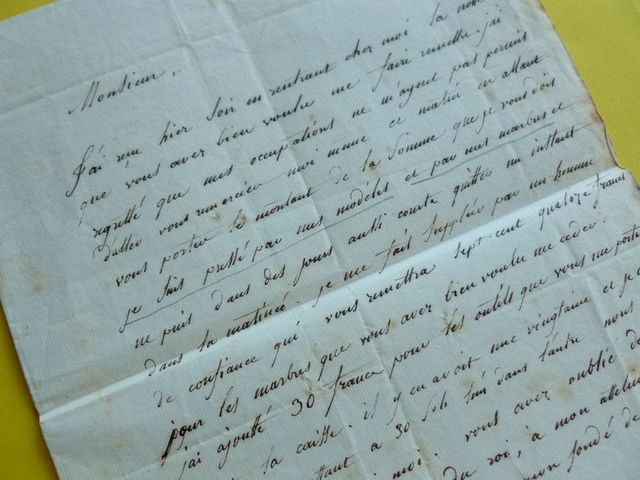 Monsieur.
J'ai reçu hier soir en rentrant chez moi la note
que vous avez bien voulu me faire remettre. j'ai
regretté que mes occupations ne m'ayent pas permis
d'aller vous remercier moi meme ce matin en allant
vous porter le montant de la somme que je vous dois
je suis pressé par mes modèles et par mes marbres et
ne puis dans des jours aussi courts quitter un instant
dans la matinée. je me fait suppléer par un homme
de confiance qui vous remettra sept-cent quatorze francs
pour les marbres que vous avez bien voulu me céder.
j'ai ajoutté 30 francs pour les outils que vous me porté
la caisse. il y en avoit une vingtaine et je
a 30 sols l'un dans l'autre nous
moi. vous avez oublié de
du roi, à mon attelier
fondé de